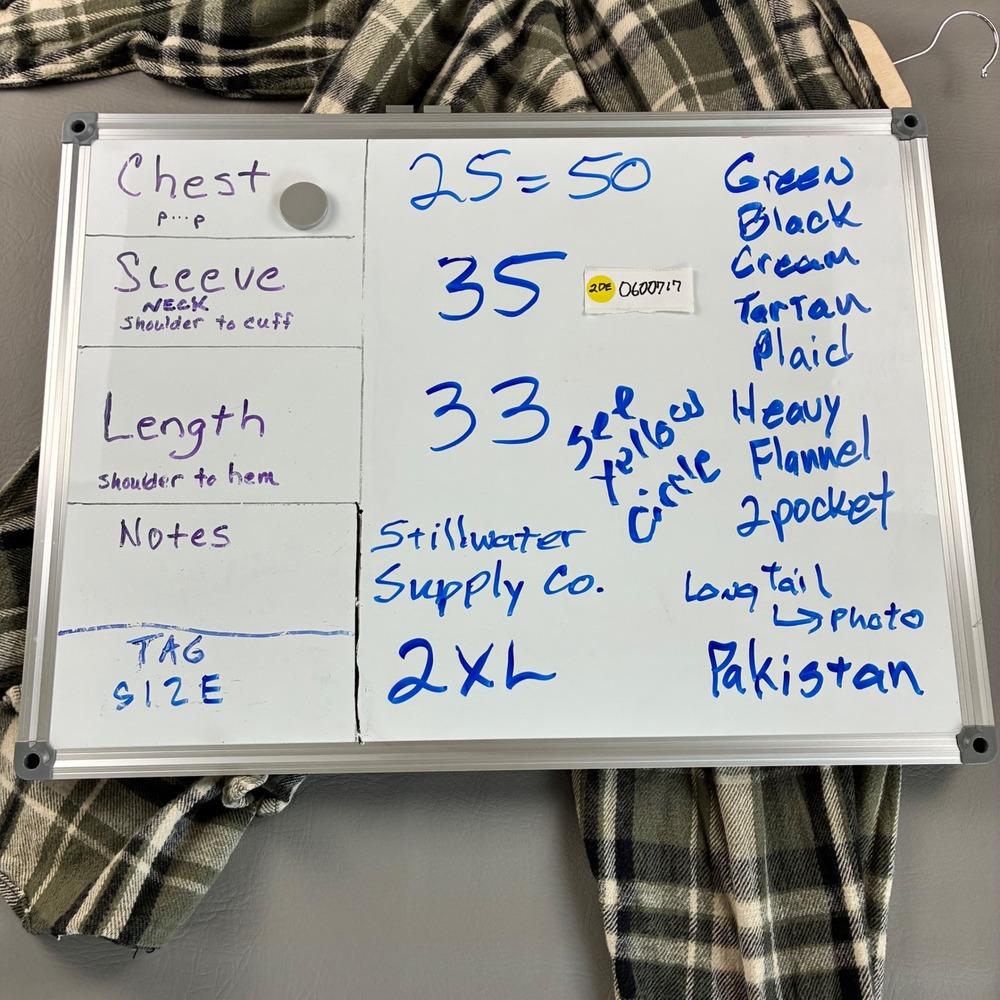 Chest
P...P
25 = 50
Sleeve
NECK
shoulder to cuff
35
2DE 0600717
Length
shoulder to hem
33
See
Yellow
Circle
Notes
Stillwater
Supply Co.
TAG
SIZE
2XL
Green
Black
Cream
Tartan
Plaid
Heavy
Flannel
2pocket
Long Tail
↳ Photo
Pakistan